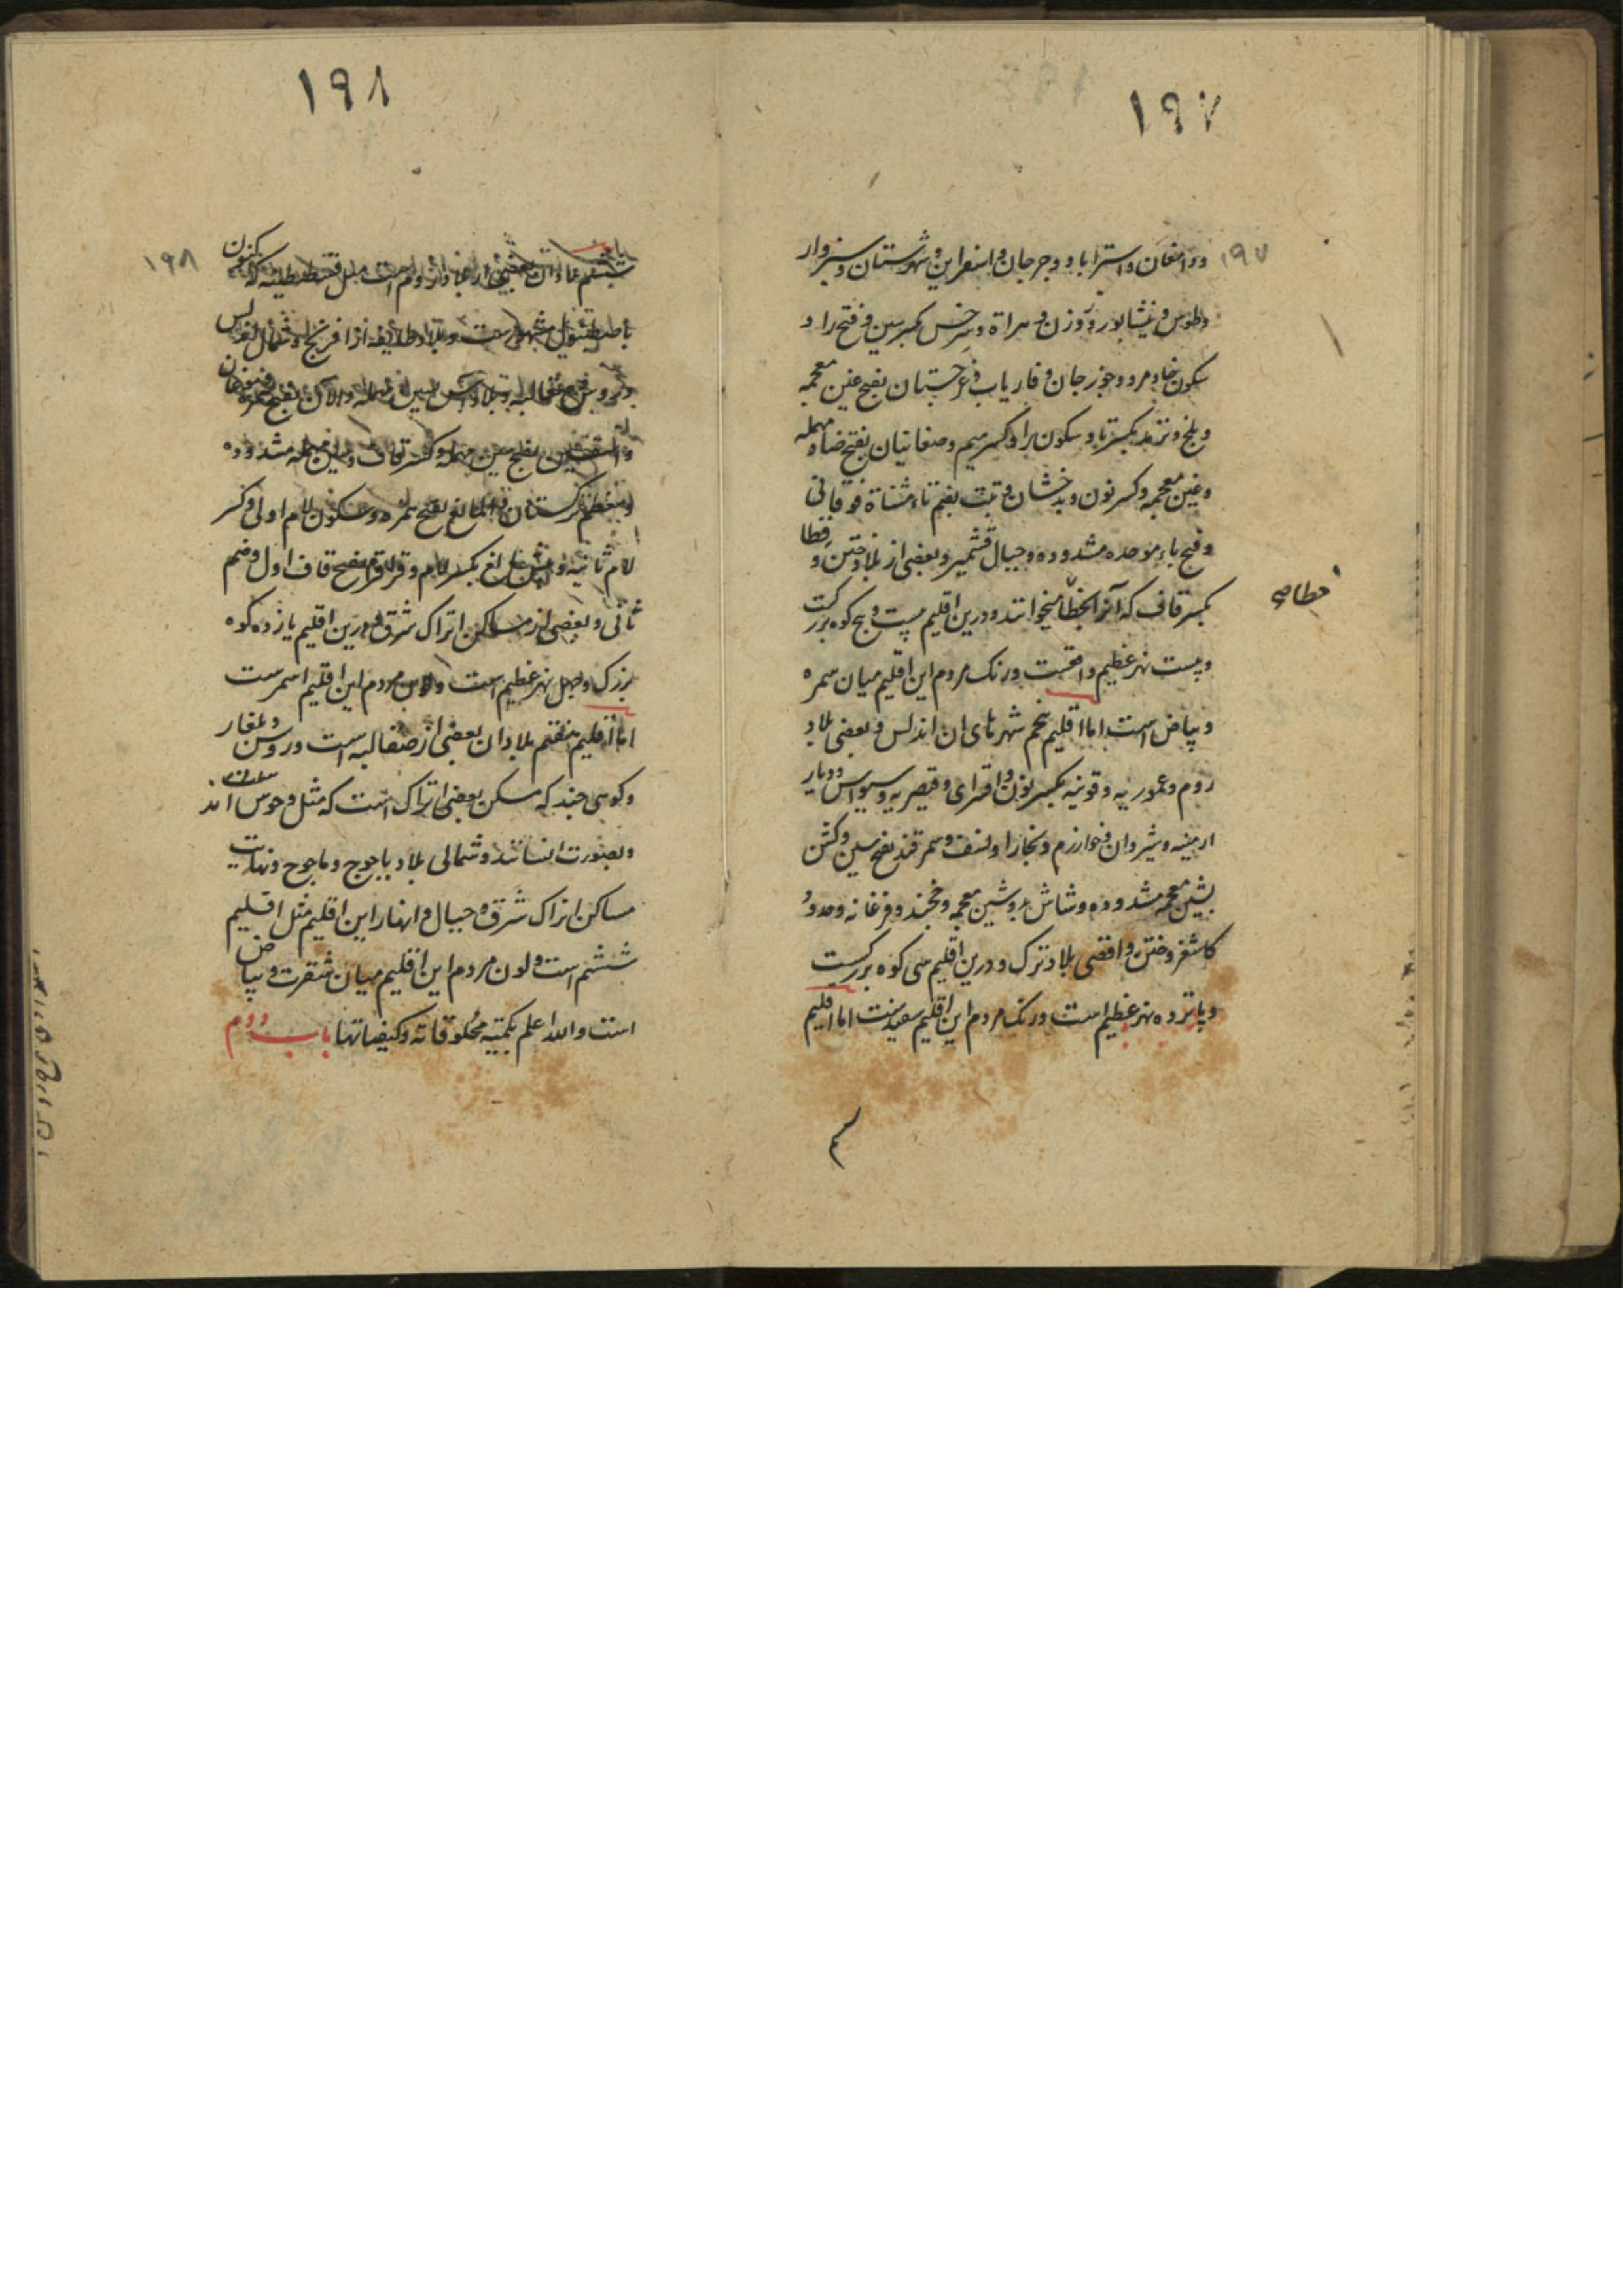 ۱۹۷
۱۹۷
ودامغان و استراباد و جرجان و اسفراین و شهرستان و سبزوار
و طوس و نیشابور و زوزن و هراة و سرخس بکسر سین و فتح را و
سکون خا و مرو و جوزجان و فاریاب و غرجستان بفتح غین معجمه
و بلخ و ترمد بکسر تا و سکون را و کسر میم و صغانیان بفتح صاد مهمله
و غین معجمه و کسر نون و بدخشان و تبت بضم تاء مثناة فوقانی
و فتح باء موحده مشدوده و جبال قشمیر و بعضی از بلاد ختن و قطا
بکسر قاف که آنرا خطا میخوانند و درین اقلیم بیست و پنج کوه بزرکست
خطا
و بیست نهر عظیم واقعست و رنک مردم این اقلیم میان سمره
و بیاض است اما اقلیم پنجم شهرهای ان اندلس و بعضی بلاد
روم و عموریه و قونیه بکسر نون و اقسرای و قیصریه و سیواس و دیار
ارمینه و شیروان و خوارزم و بخارا و نسف و سمرقند بفتح سین و کش
بشین معجمه مشدوده و شاش بدو شین معجمه و خجند و فرغانه و حدود
کاشغر و ختن و اقصی بلاد ترک و درین اقلیم سی کوه بزرکست
و پانزده نهر عظیم است و رنک مردم این اقلیم سفیدست اما اقلیم
۱۹۸
۱۹۸
ششم بلاد ان بعضی از بلاد روم است مثل قسطنطنیه که کنون
باصطنبول مشهورست و بلاد طایفه از افرنج و شمال اندلس
بفتح
و معظم ترکستان و المالیغ بفتح همزه و سکون لام اولی و کسر
لام ثانیه و بکسر لام و قراقرم بفتح قاف اول و ضم
ثانی و بعضی از مساکن اتراک شرق و درین اقلیم یازده کوه
بزرک و چهل نهر عظیم است و لون مردم این اقلیم اسمرست
اما اقلیم هفتم بلاد ان بعضی از صقالبه است و روس و بلغار
و کوهی چند که مسکن بعضی اتراک است که مثل وحوش اند
و بصورت انسانند و شمالی بلاد یاجوج و ماجوج و نهایت
مساکن اتراک شرق و جبال و انهار این اقلیم مثل اقلیم
ششم است و لون مردم این اقلیم میان شقرت و بیاض
است والله اعلم بکمیه مخلوقاته و کیفیاتها باب دوم